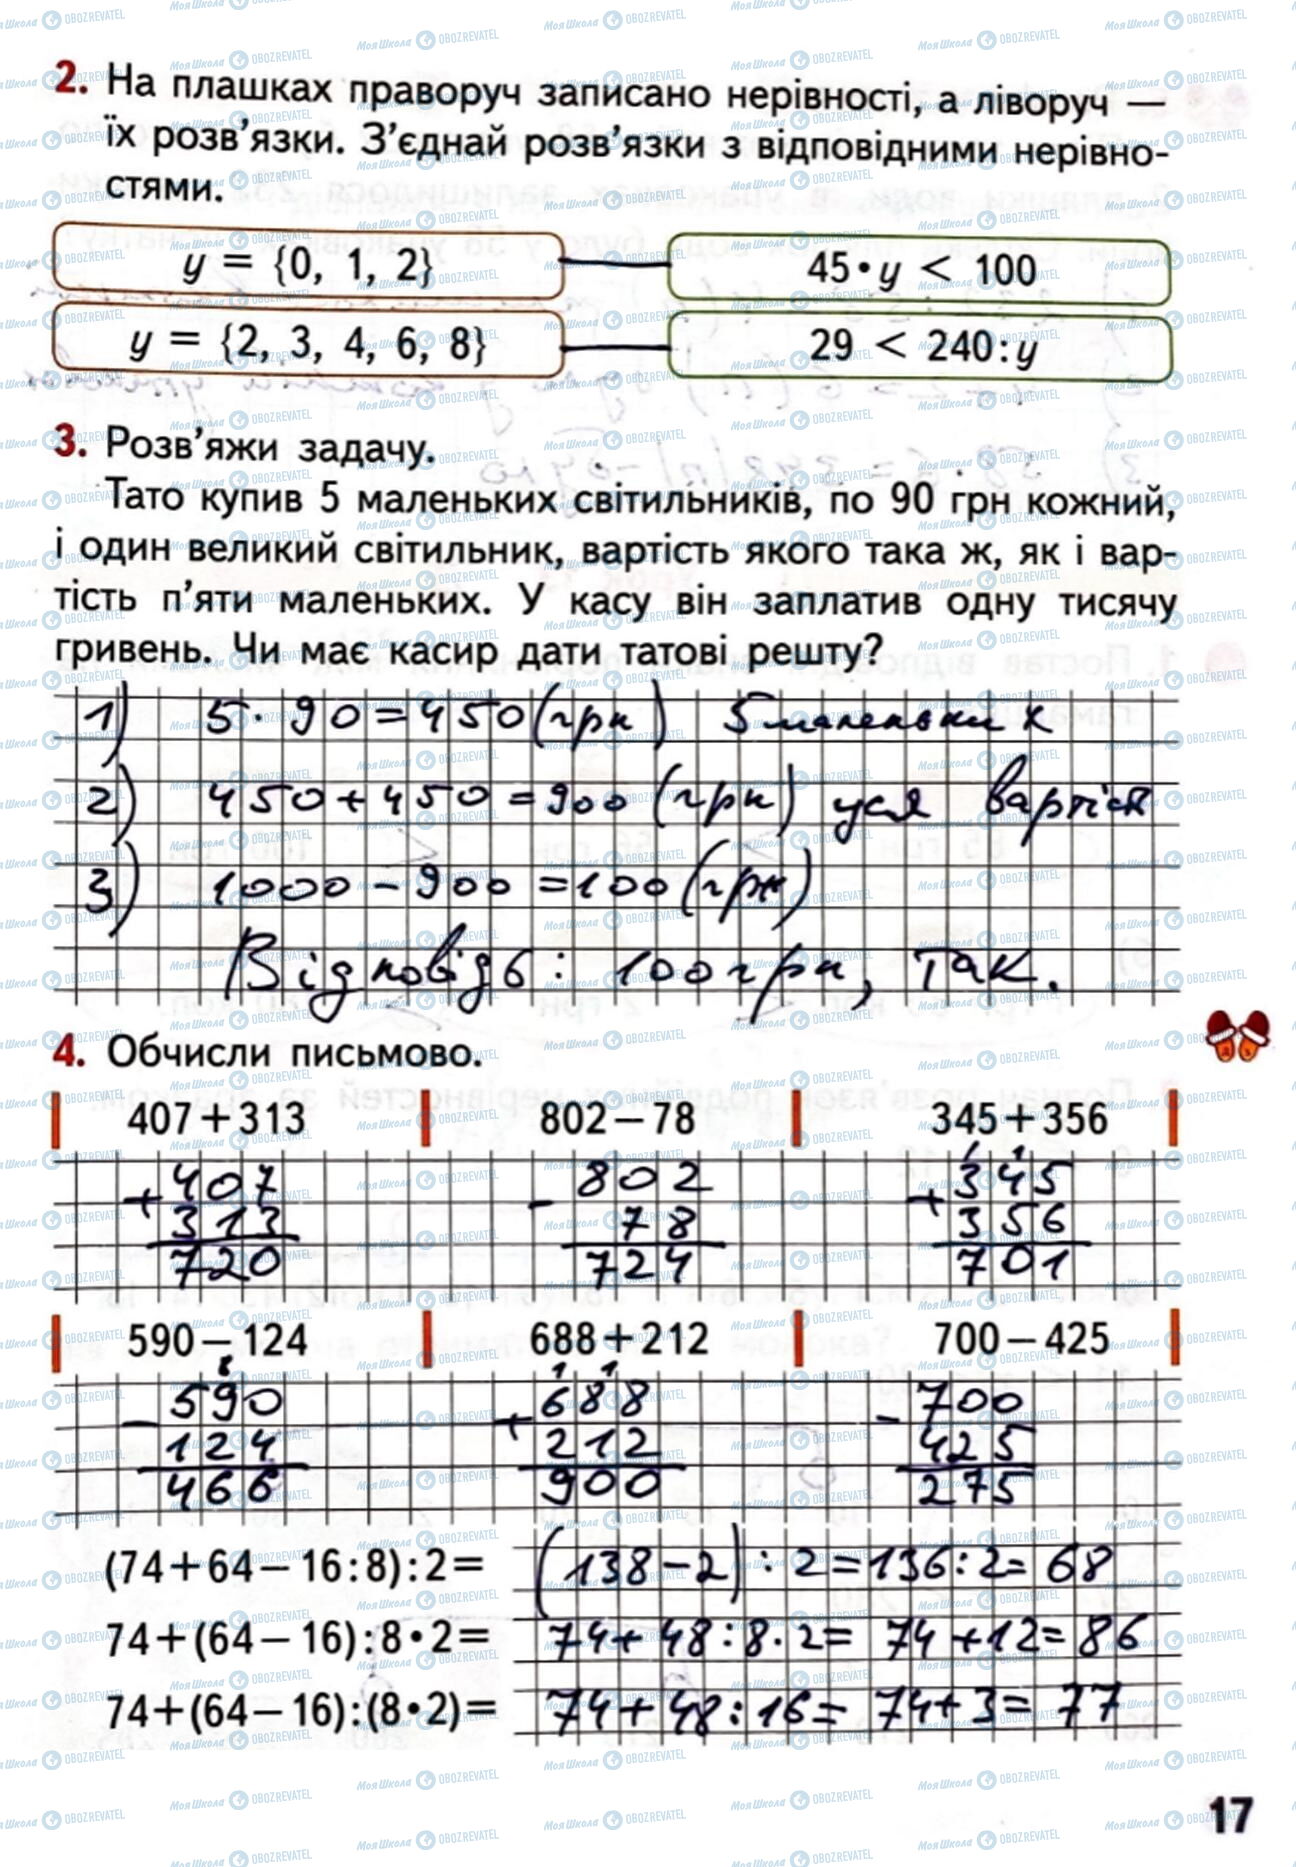 2. На плашках праворуч записано нерівності, а ліворуч —
їх розв'язки. З'єднай розв'язки з відповідними нерівно-
стями.
y = {0, 1, 2}
45•y < 100
y = {2, 3, 4, 6, 8}
29 < 240:y
3. Розв'яжи задачу.
Тато купив 5 маленьких світильників, по 90 грн кожний,
і один великий світильник, вартість якого така ж, як і вар-
тість п'яти маленьких. У касу він заплатив одну тисячу
гривень. Чи має касир дати татові решту?
1) 5·90=450(грн) 5 маленьких
2) 450+450=900 (грн) уся вартість
3) 1000-900=100(грн)
Відповідь: 100грн, так.
4. Обчисли письмово.
407+313 802-78 345+356
+407 -802 +345
313 78 356
720 724 701
590-124 688+212 700-425
-590 +688 -700
124 212 425
466 900 275
(74+64-16:8):2= (138-2):2=136:2=68
74+(64-16):8•2= 74+48:8·2=74+12=86
74+(64-16):(8•2)= 74+48:16=74+3=77
17
МояШкола OBOZREVATEL